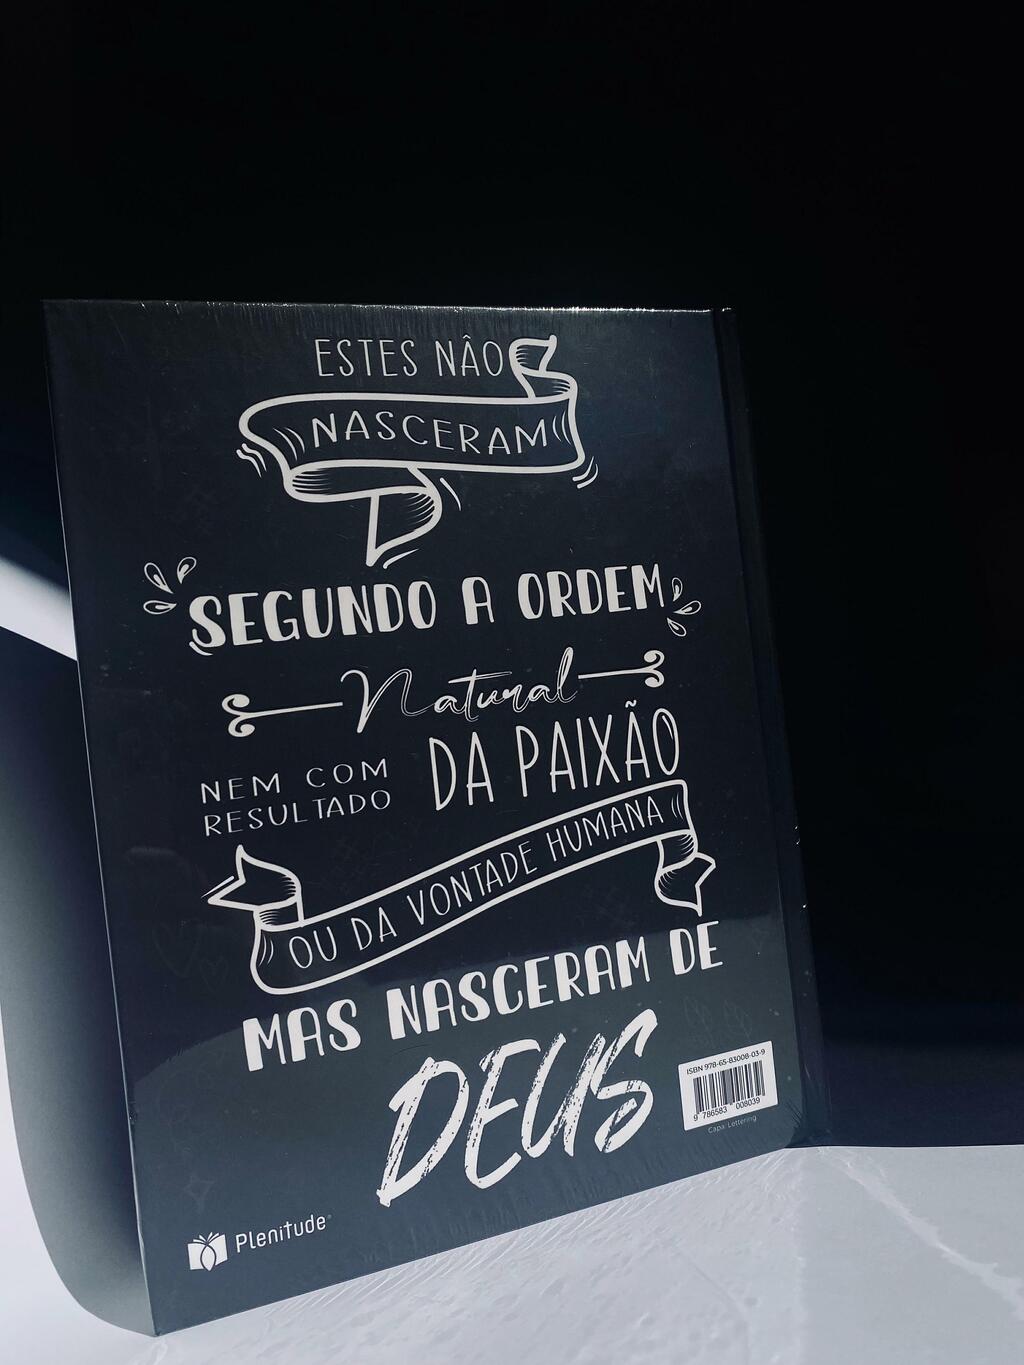 ESTES NÃO
NASCERAM
SEGUNDO A ORDEM
Natural
NEM COM
RESULTADO
DA PAIXÃO
OU DA VONTADE HUMANA
MAS NASCERAM DE
DEUS
ISBN 978-65-83008-03-9
9 786583 008039
Capa: Lettering
Plenitude